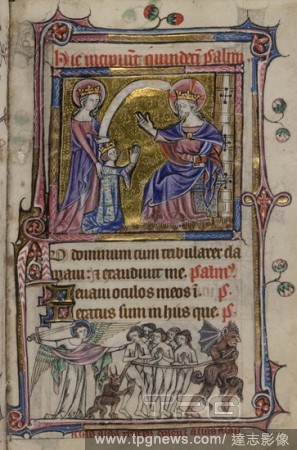 Hic incipiūt quindecī psalmi
AD dominum cum tribularer cla
maui: ⁊ exaudiuit me.
Leuaui oculos meos ī.
Letatus sum in hiis que.
TPG
www.tpgnews.com / 達志影像